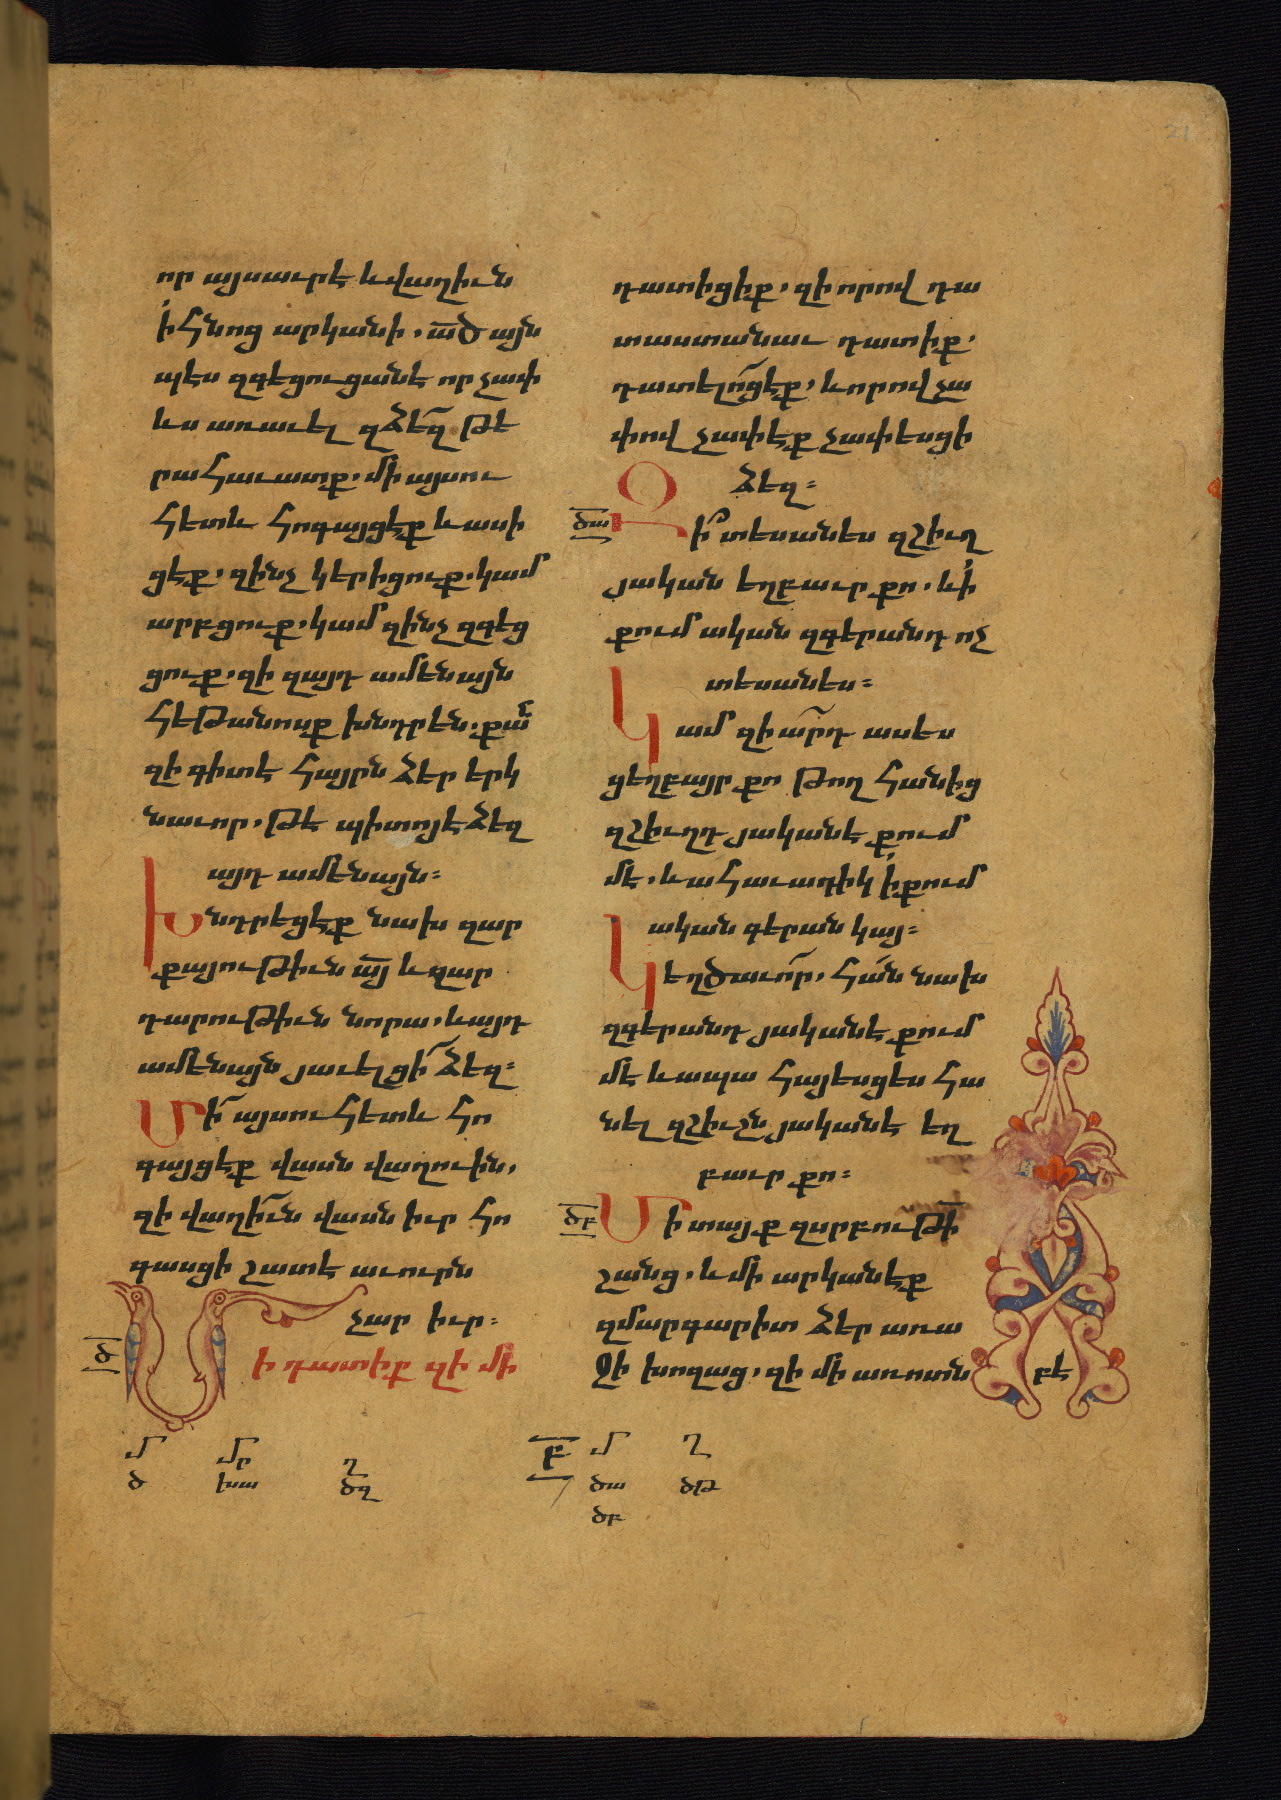 որ այսաւր է և վաղիւն
ի հնոց արկանի. ած այն
պէս զգեցուցանէ որչափ
ևս առաւել զձեզ թե
րահաւատք. մի այսու
հետև հոգայցէք և ասի
ցէք. զինչ կերիցուք. կամ
արբցուք. կամ զինչ զգեց
ցուք. զի զայդ ամենայն
հեթանոսք խնդրեն. քան
զի գիտէ հայրն ձեր երկ
նաւոր. թէ պիտոյ է ձեզ
այդ ամենայն։
Խնդրեցէք նախ զար
քայութիւն այ և զար
դարութիւն նորա. և այդ
ամենայն յաւելցի ձեզ։
Մի այսու հետև հո
գայցէք վասն վաղուին.
զի վաղիւն վասն իւր հո
գասցի շատ է աւուրն
չար իւր։
ծ Մի դատիք զի մի
դատիցիք. զի որով դա
տաստանաւ դատիք.
դատելոցէք. և որով չա
փով չափէք չափեսցի
ձեզ։
ծա Զի տեսանես զշիւղ
յական եղբաւր քո. և ի
քում ական զգերանդ ոչ
տեսանես։
Կամ զիարդ ասես
ցեղբայր քո թող հանից
զշիւղդ յականէ քում
մէ. և ահաւադիկ ի քում
ական գերան կայ։
Կեղծաւոր. հան նախ
զգերանդ յականէ քում
մէ և ապա հայեսցես հա
նել զշիւղն յականէ եղ
բաւր քո։
ծբ Մի տայք զսրբութի
շանց. և մի արկանէք
զմարգարիտ ձեր առա
ջի խոզաց. զի մի առոտն
բե
մ մր ղ
ծ խա ծզ
բ մ ղ
ծա ծթ
ծբ
21